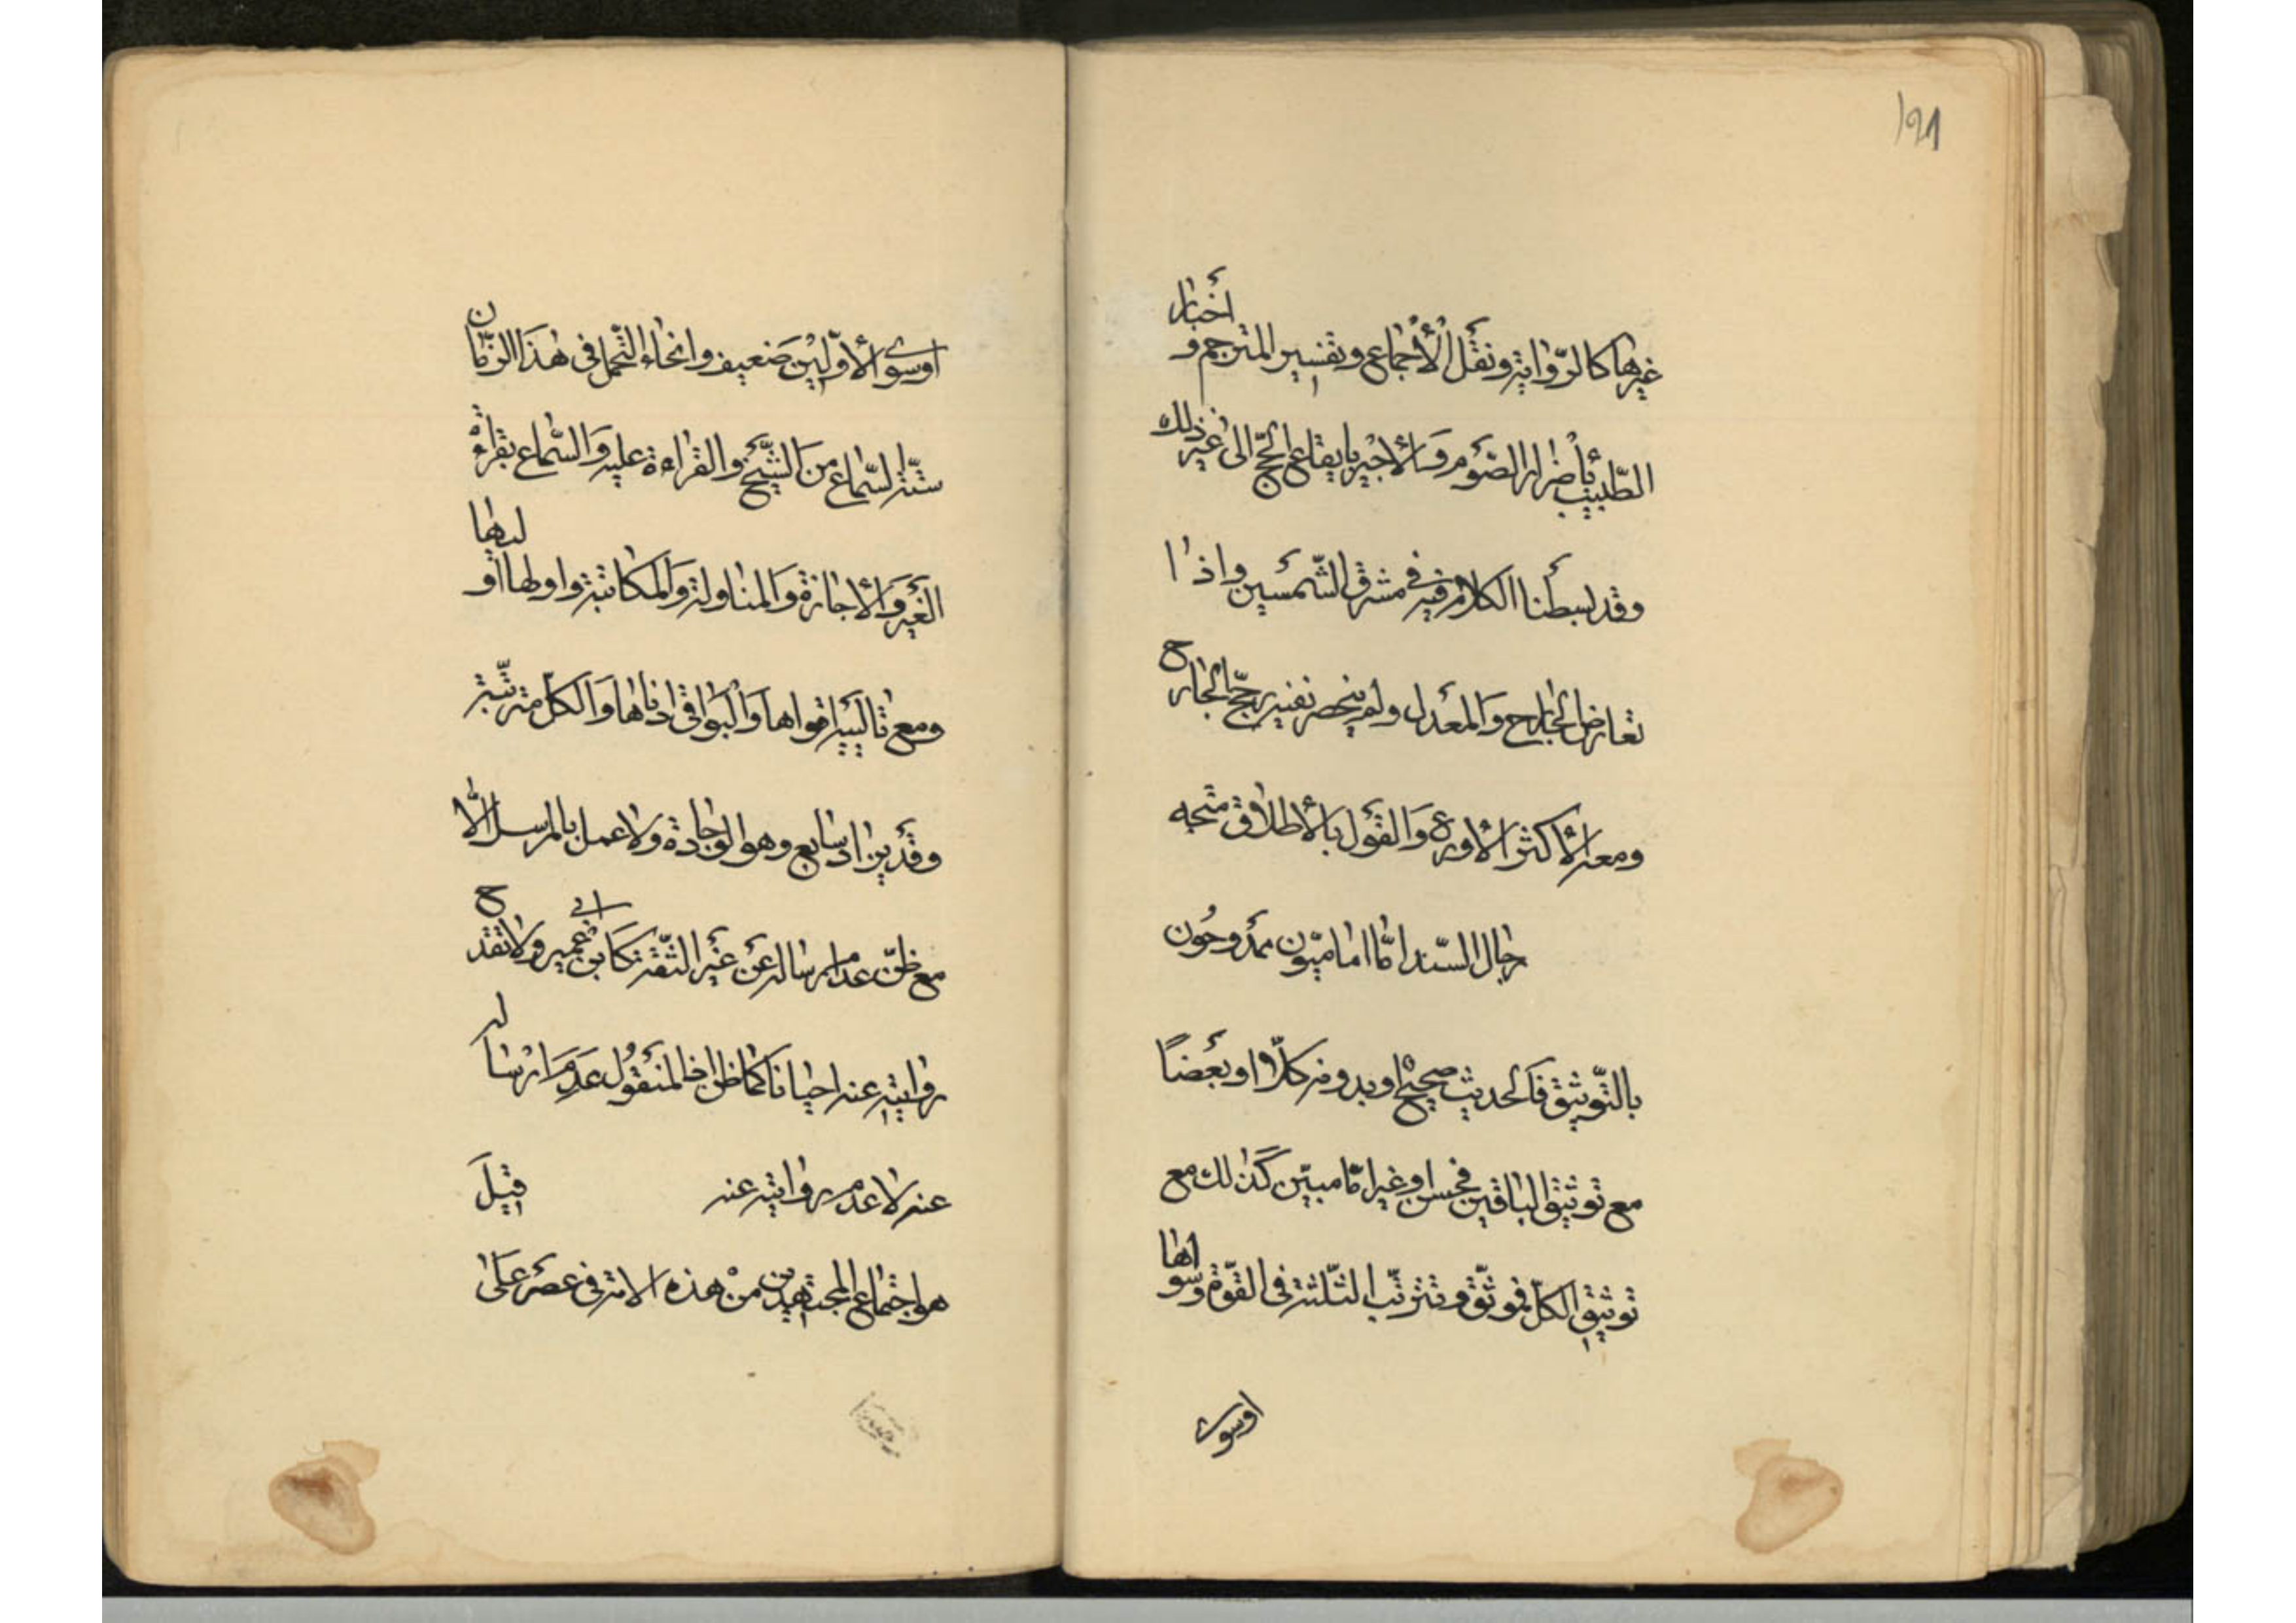 121
غيرها كالرّواية ونقل الأجماع وتفسير المترجم و أخبار
الطّبيب بأضرار الصّوم وَالأجير بايقاع الحجّ الى غير ذلك
وقد بسطنا الكلام فيه في مشرق الشّمسين واذا
تعارض الجارح وَالمعدل ولم ينحصر نفيه يرجّح الجارح
ومعه الأكثر الأورع وَالقول بالأطلاق متجه
رجال السّند امّا اماميّون ممدوحُون
بالتّوثيق فَالحديث صحيح او بدونه كلّا او بعضًا
مع توثيق الباقين فحسن او غير اماميّين كذلك مع
توثيق الكلّ فموثّق وتترتّب الثّلثة في القوّة وسواها
اوسوى
اوسوى الأوّلين ضعيف وانحاء التّحمل في هذا الزّمان
ستّة السّماع من الشّيخ والقراءة عليه وَالسّماع بقراءة
الغير وَالأجازة وَالمناولة وَالمكاتبة واولها اوليها
ومع تالييه اقواها وَالبواقى ادناها وَالكلّ مترتّبة
وقد يزاد سابع وهو الوجادة ولا عمل بالمرسل الّا
مع ظنّ عدم ارساله عن غير الثّقة كابن ابى عمير ولا تقدح
روايته عنه احيانا كما ظن اذ المنقول عدم ارساله
عنه لا عدم روايته عنه قيل
هو اجتماع المجتهدين من هذه الامة في عصر على